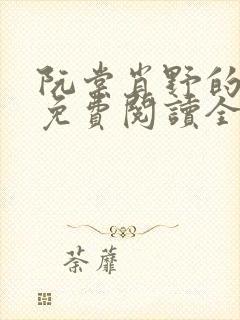 阮棠肖野的
免費閱讀全
荼蘼